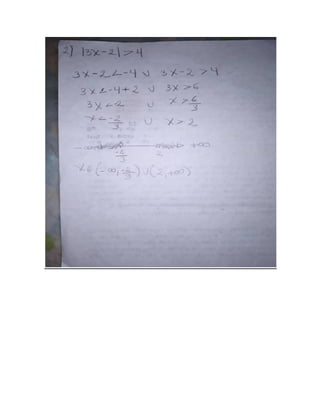 2) |3x-2|>4
3x-2<-4 ∪ 3x-2>4
3x<-4+2 ∪ 3x>6
3x<-2 ∪ x>6/3
x<-2/3 ∪ x>2
-∞ -2/3 2 +∞
x∈(-∞;-2/3)∪(2,+∞)